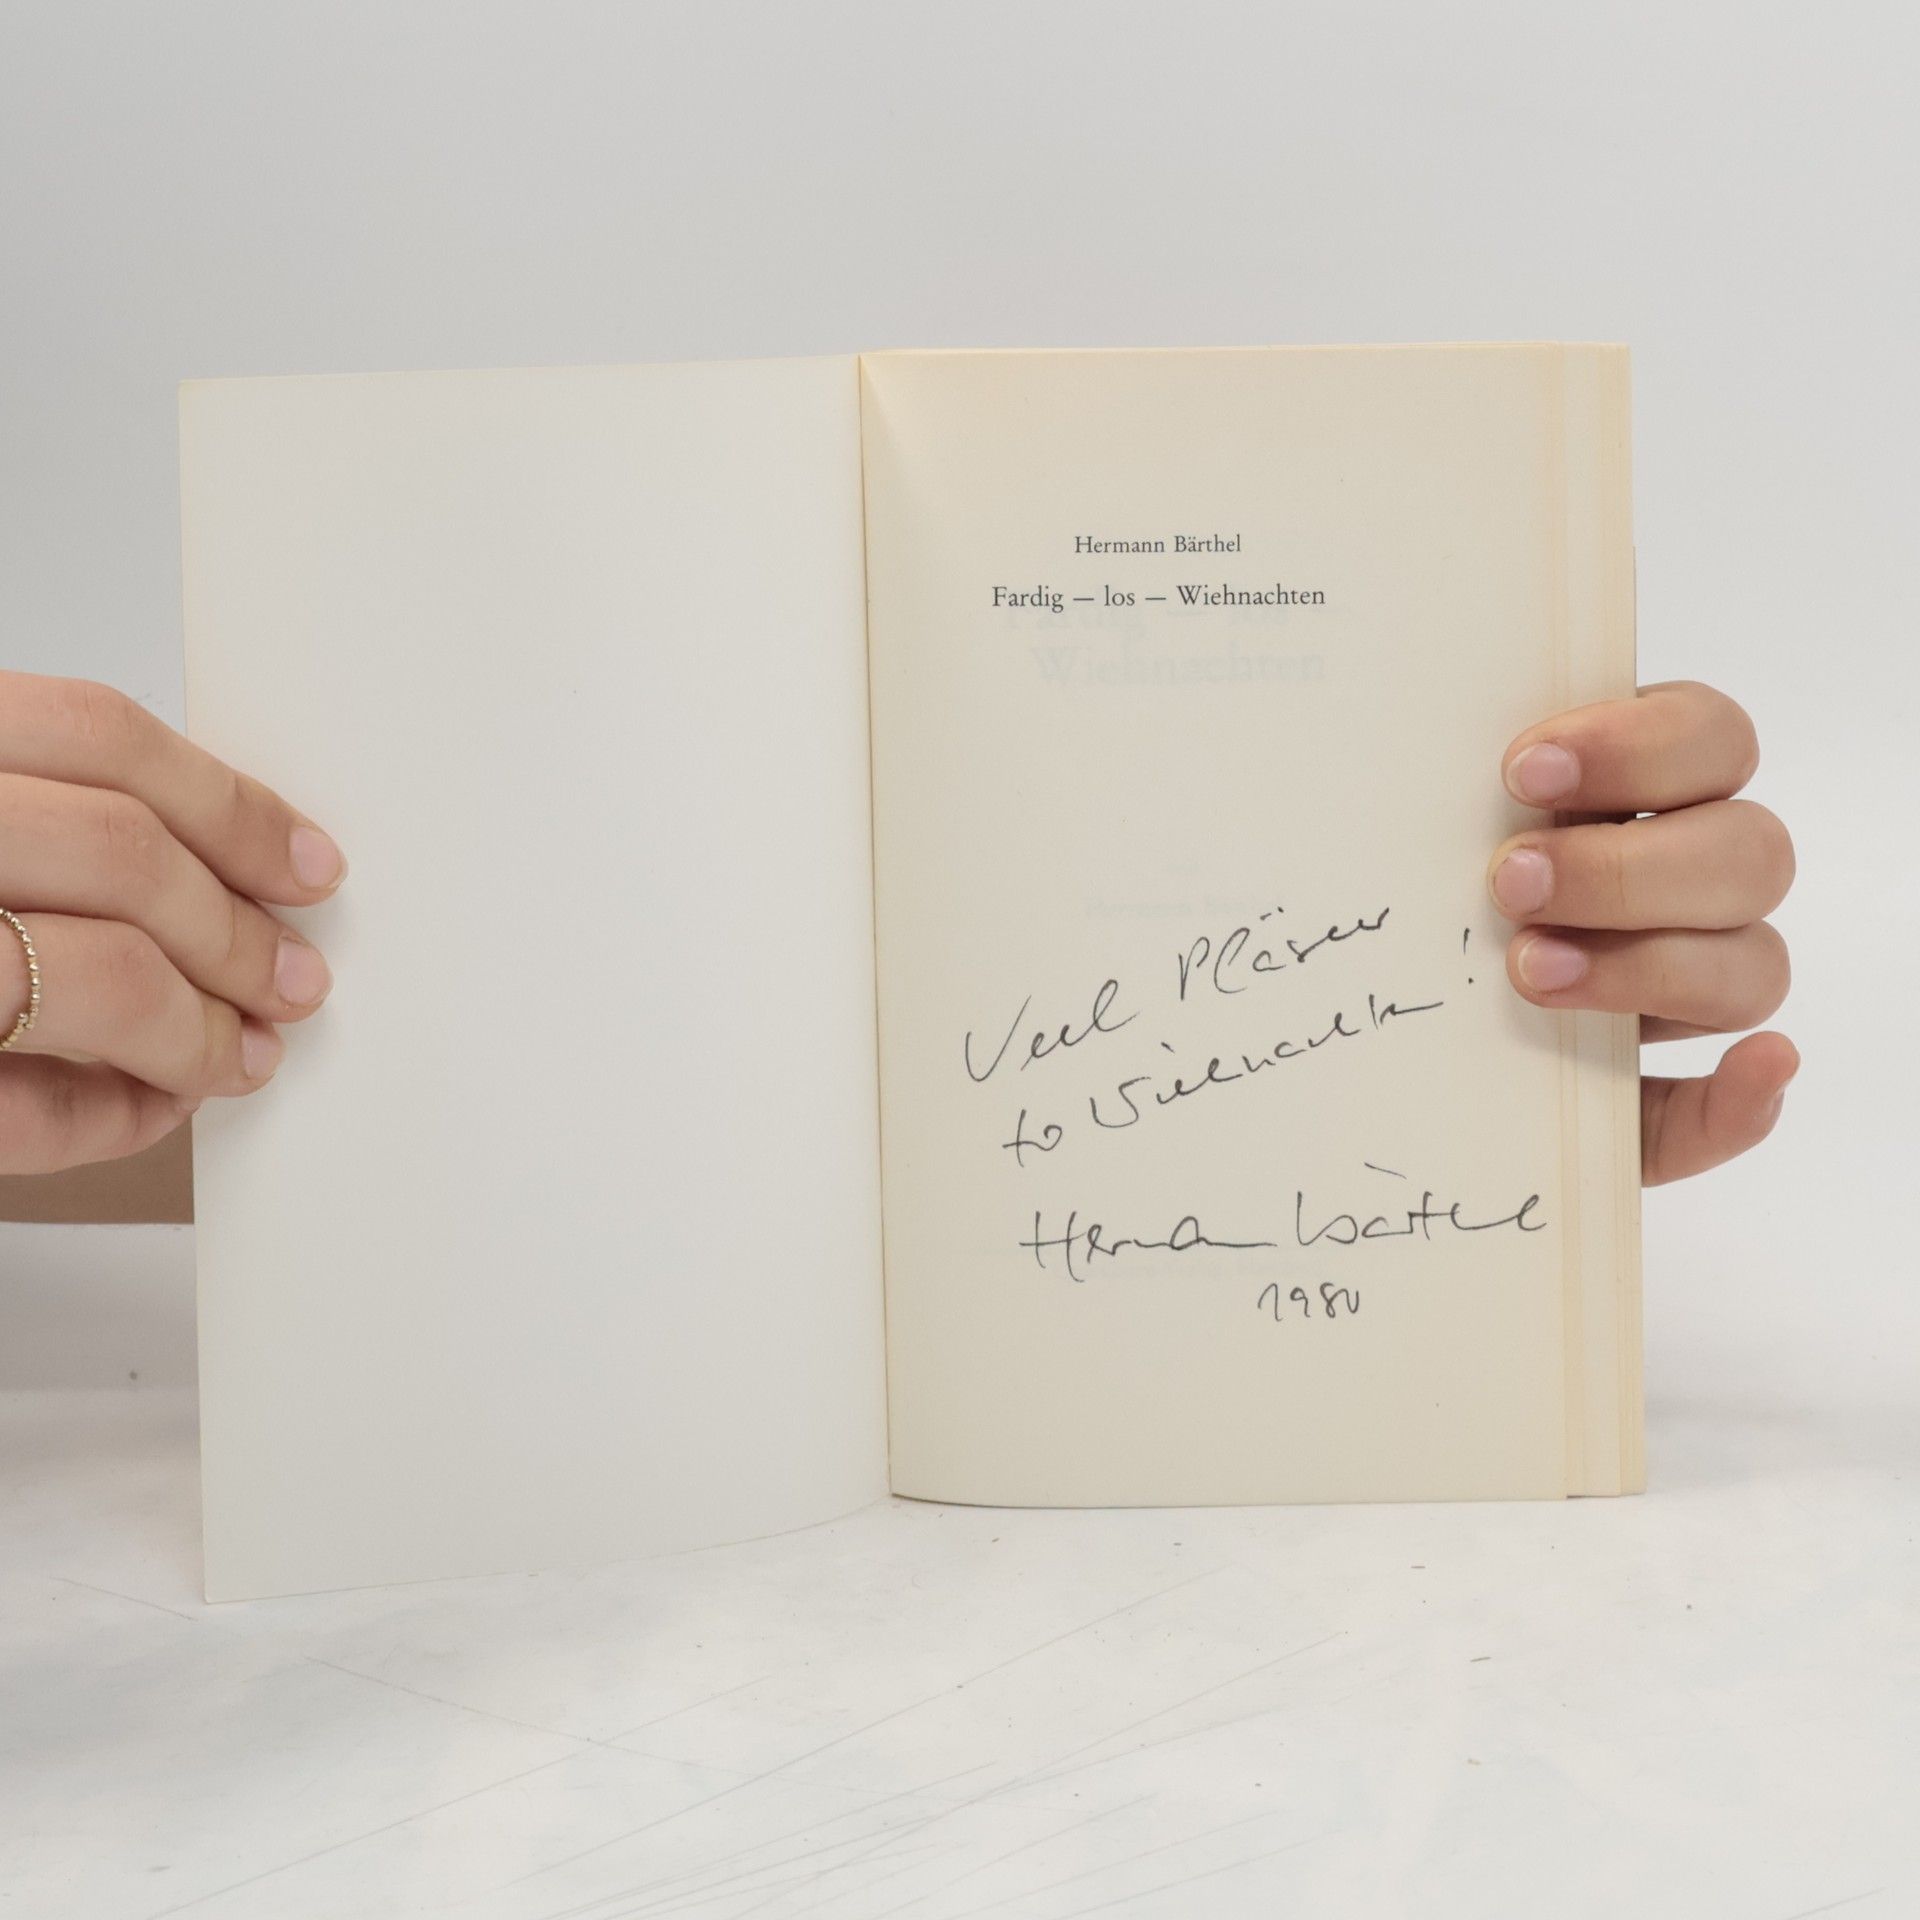 Hermann Bärthel
Fardig — los — Wiehnachten
Veel Pläseer
to Wiehnachten!
Hermann Bärthel
1980